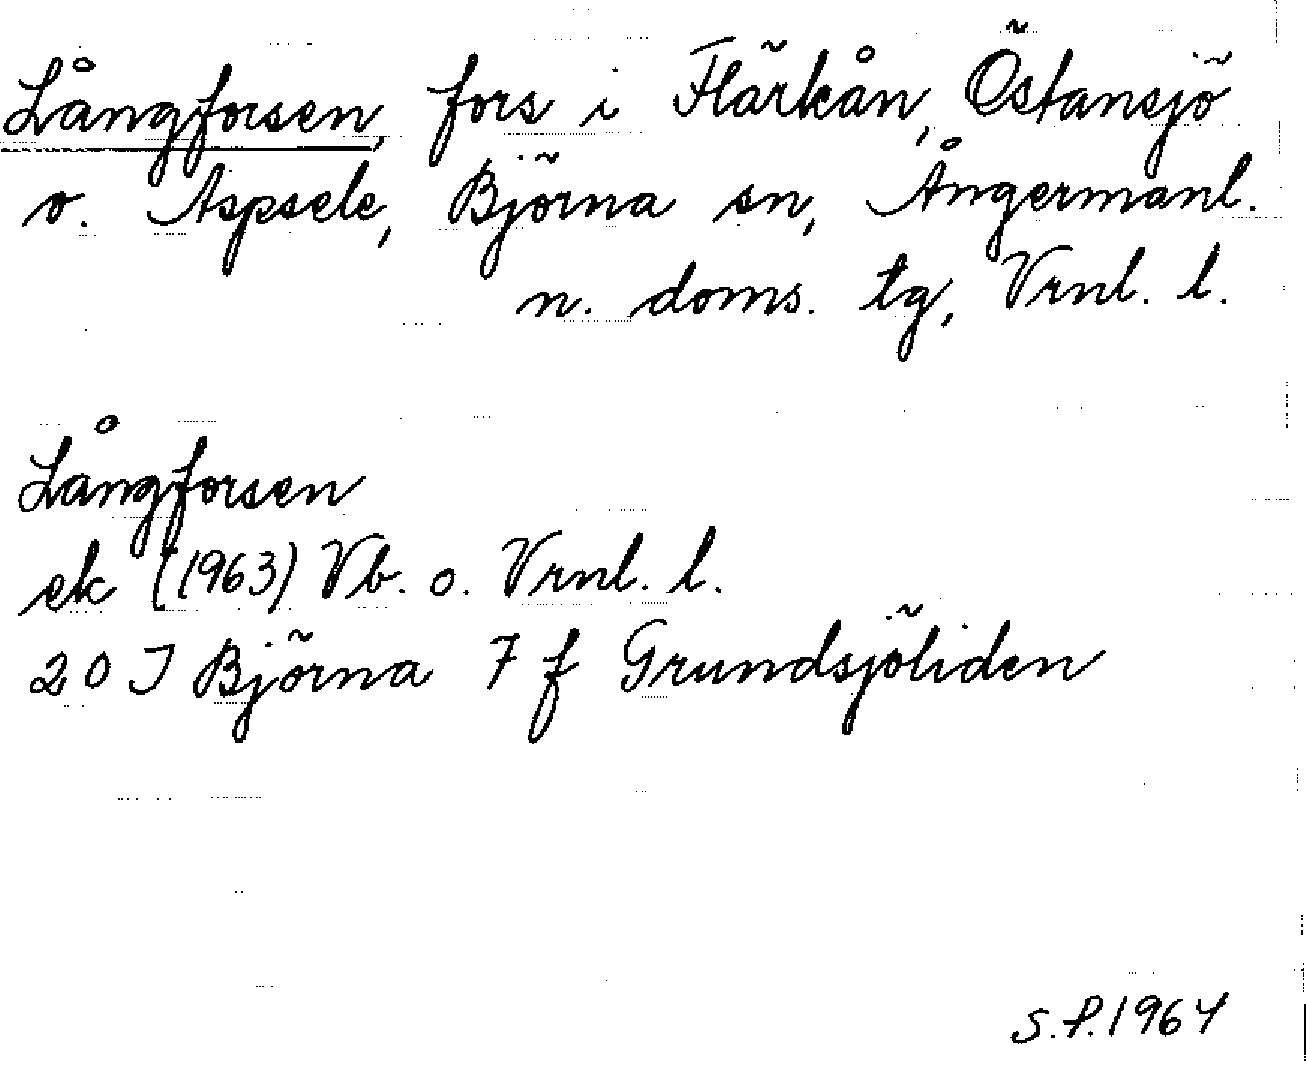 Långforsen, fors i Flärkån, Östansjö
o. Aspsele, Björna sn, Ångermanl.
n. doms. tg, Vrnl. l.
Långforsen
ek (1963) Vb. o. Vrnl. l.
20 J Björna 7 f Grundsjöliden
S.P. 1964